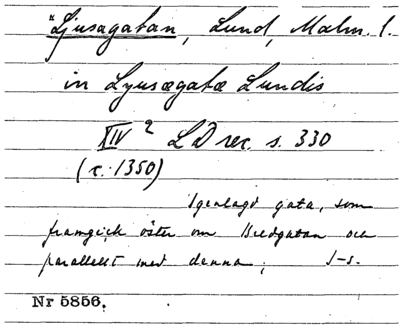 "Ljusagatan, Lund, Malm. l.
in Lyusægatæ Lundis
XIV 2 LD rec. s. 330
(c. 1350)
Igenlagd gata, som
framgick öster om Bredgatan och
parallellt med denna; J-s.
Nr 5856.